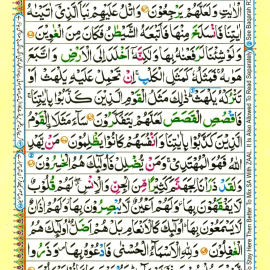 الْاٰيٰتِ وَلَعَلَّهُمْ يَرْجِعُوْنَ وَاتْلُ عَلَيْهِمْ نَبَاَ الَّذِيْۤ اٰتَيْنٰهُ
اٰيٰتِنَا فَانْسَلَخَ مِنْهَا فَاَتْبَعَهُ الشَّيْطٰنُ فَكَانَ مِنَ الْغٰوِيْنَ
وَلَوْ شِئْنَا لَرَفَعْنٰهُ بِهَا وَلٰكِنَّهٗۤ اَخْلَدَ اِلَى الْاَرْضِ وَاتَّبَعَ
هَوٰىهُ فَمَثَلُهٗ كَمَثَلِ الْكَلْبِ اِنْ تَحْمِلْ عَلَيْهِ يَلْهَثْ اَوْ
تَتْرُكْهُ يَلْهَثْ ذٰلِكَ مَثَلُ الْقَوْمِ الَّذِيْنَ كَذَّبُوْا بِاٰيٰتِنَا
فَاقْصُصِ الْقَصَصَ لَعَلَّهُمْ يَتَفَكَّرُوْنَ سَآءَ مَثَلًا الْقَوْمُ
الَّذِيْنَ كَذَّبُوْا بِاٰيٰتِنَا وَاَنْفُسَهُمْ كَانُوْا يَظْلِمُوْنَ مَنْ يَّهْدِ
اللّٰهُ فَهُوَ الْمُهْتَدِيْ وَمَنْ يُّضْلِلْ فَاُولٰٓئِكَ هُمُ الْخٰسِرُوْنَ
وَلَقَدْ ذَرَاْنَا لِجَهَنَّمَ كَثِيْرًا مِّنَ الْجِنِّ وَالْاِنْسِ لَهُمْ قُلُوْبٌ
لَّا يَفْقَهُوْنَ بِهَا وَلَهُمْ اَعْيُنٌ لَّا يُبْصِرُوْنَ بِهَا وَلَهُمْ اٰذَانٌ
لَّا يَسْمَعُوْنَ بِهَا اُولٰٓئِكَ كَالْاَنْعَامِ بَلْ هُمْ اَضَلُّ اُولٰٓئِكَ هُمُ
الْغٰفِلُوْنَ وَلِلّٰهِ الْاَسْمَآءُ الْحُسْنٰى فَادْعُوْهُ بِهَا وَذَرُوا
Stay Here Then Better To Mix SA With ZAAL. It Is Also Allowed To Read Separately